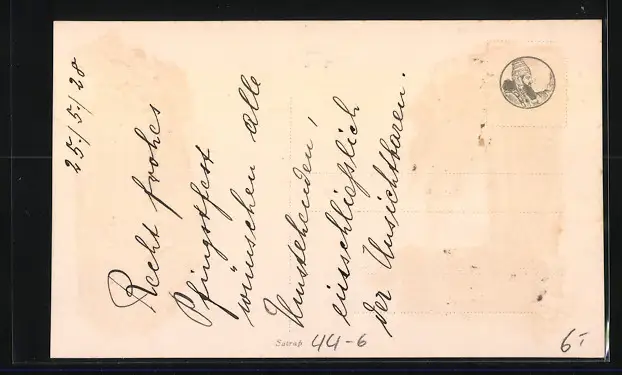 25./5./28
Recht frohes
Pfingstfest
wünschen alle
Umstehenden,
einschließlich
der Unsichtbaren.
Satrap
44-6
6,-